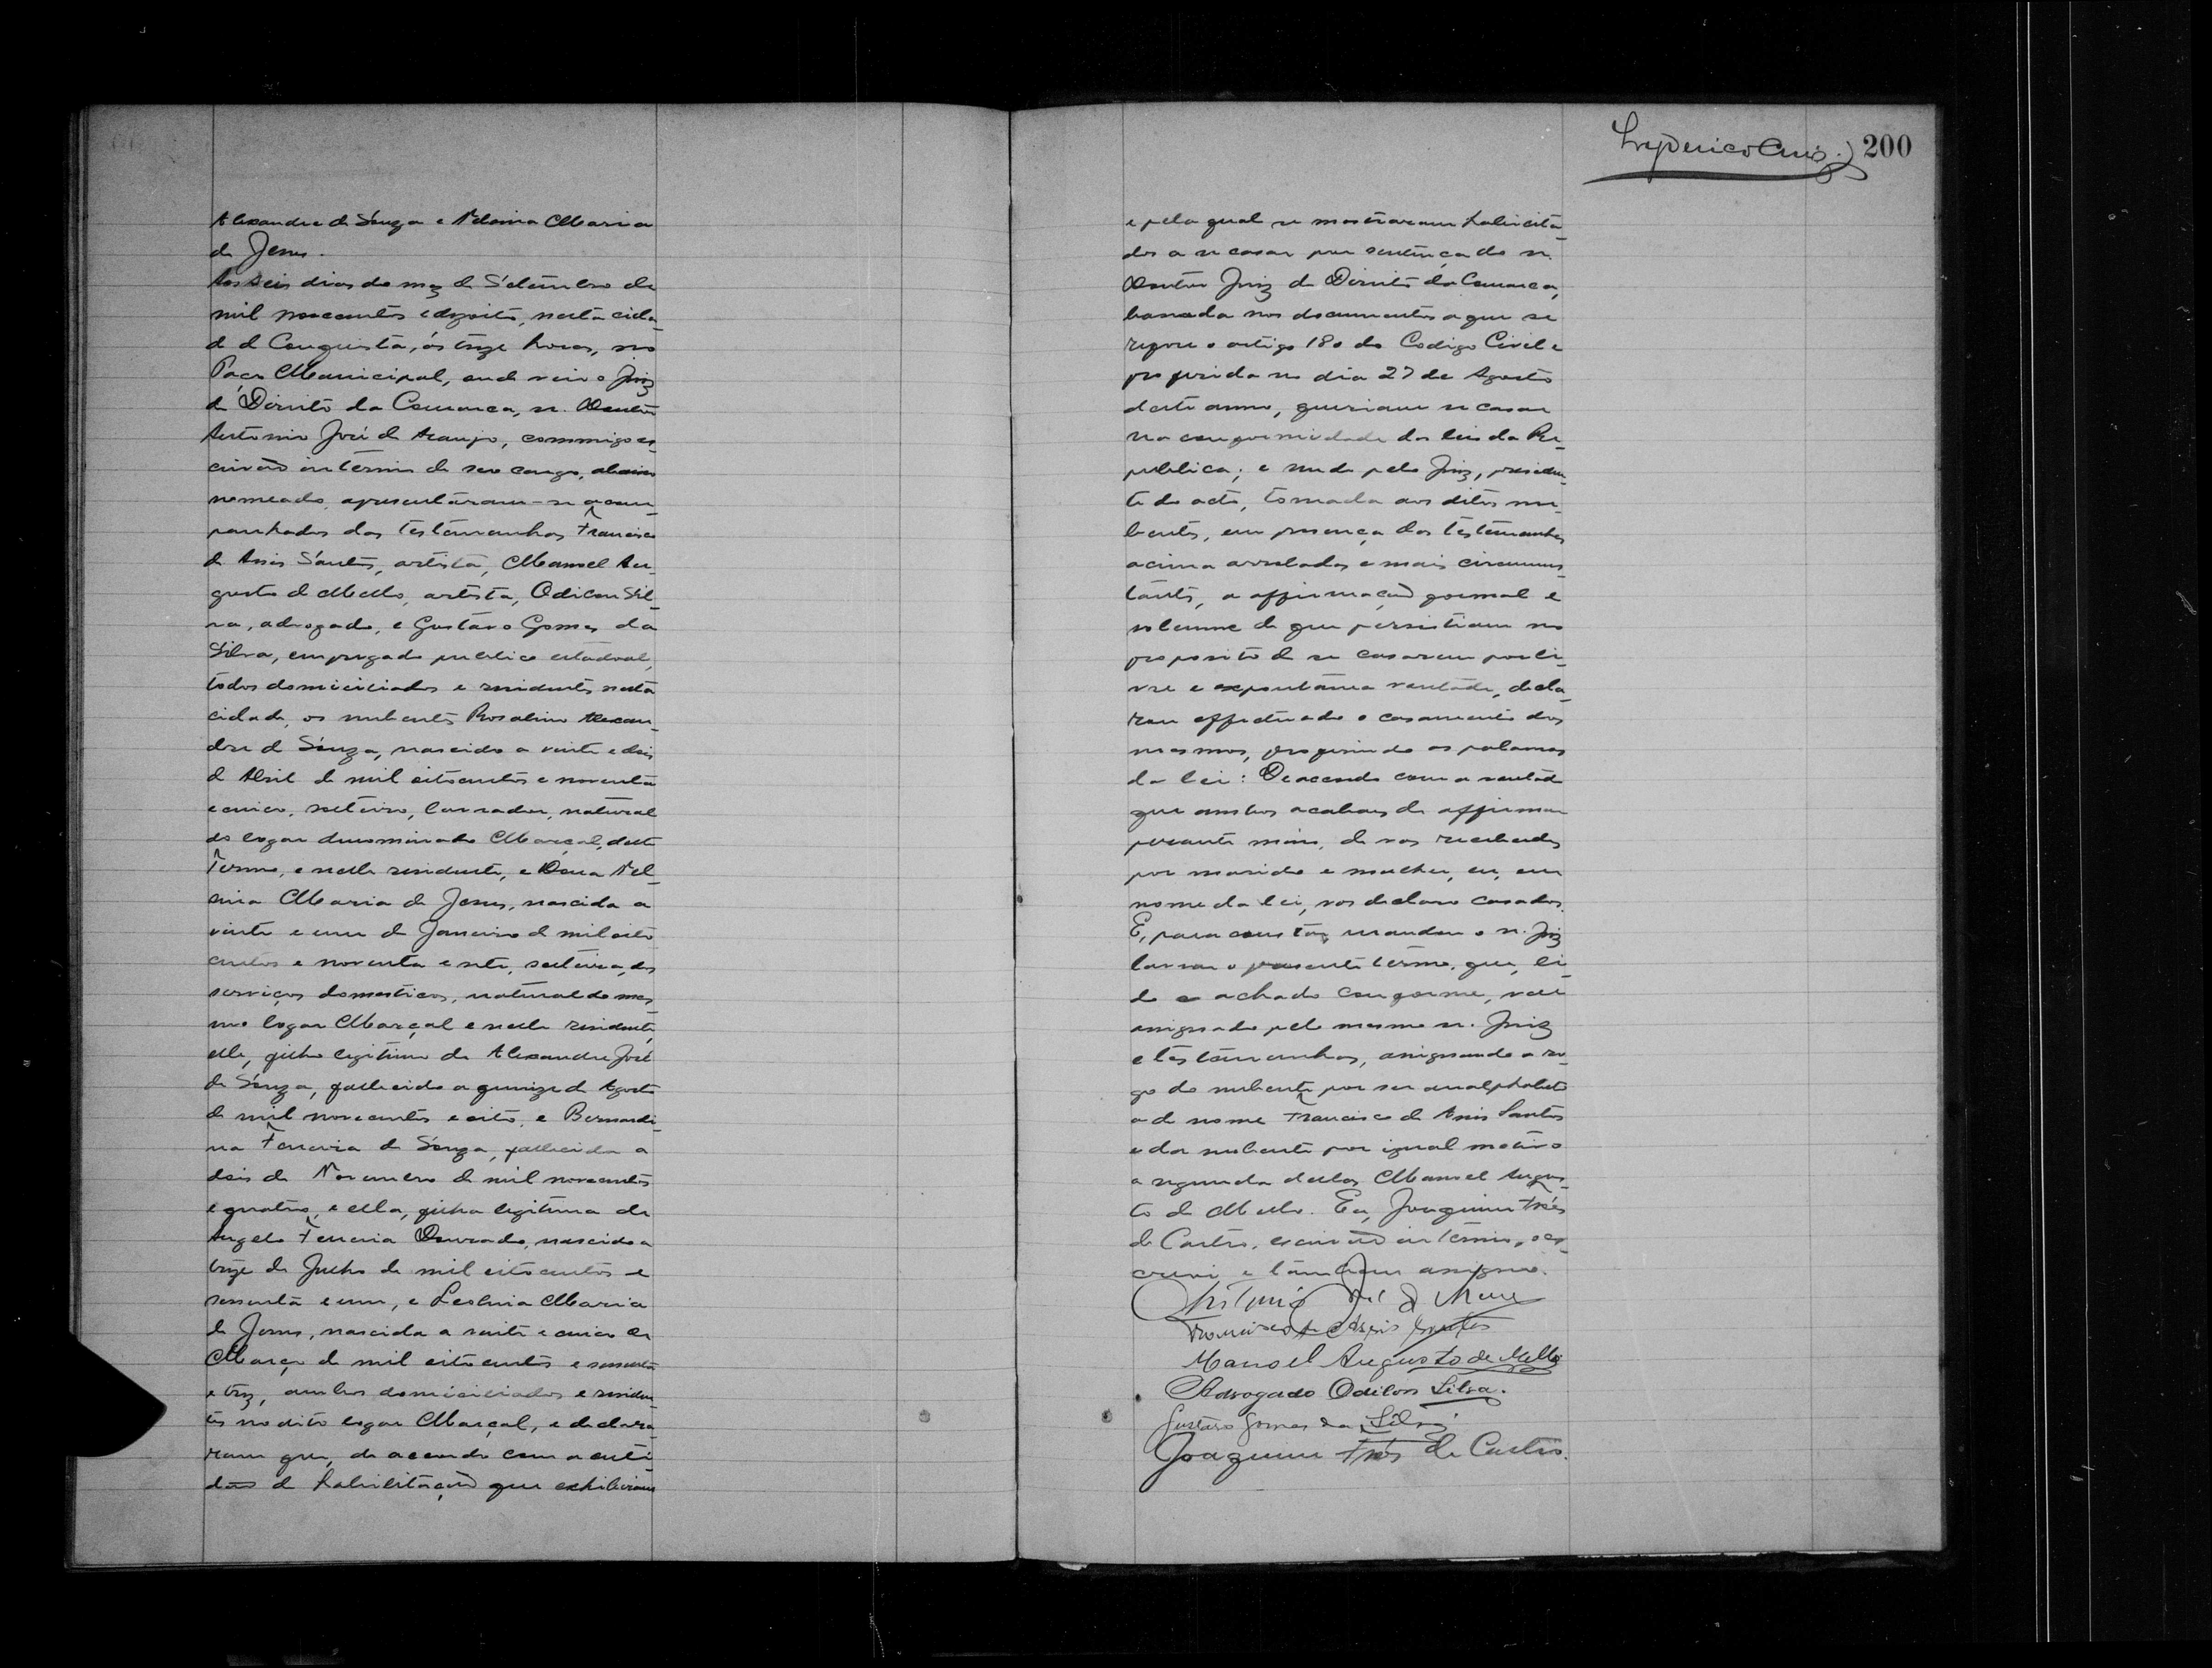 Alexandre de Souza e Idalina Maria
de Jesus.
Aos seis dias do mez de Setembro de
mil novecentos e dezoito, nesta cida-
de de Conquista, ás treze horas, no
Paço Municipal, onde veiu o Juiz
de Direito da Comarca, sr. Doutor
Antonio José de Araujo, commigo es-
crivão interino de seu cargo, abaixo
nomeado, apresentaram-se acom-
panhados das testemunhas Francisco
de Assis Santos, artista, Manoel Au-
gusto de Mello, artista, Odilon Sil-
va, advogado, e Gustavo Gomes da
Silva, empregado publico estadoal,
todos domiciliados e residentes nesta
cidade, os nubentes Rosalino Alexan-
dre de Souza, nascido a vinte e dois
de Abril de mil oitocentos e noventa
e cinco, solteiro, lavrador, natural
do logar denominado Marçal, deste
Termo, e nelle residente, e Dona
Maria de Jesus, nascida a
vinte e um de Janeiro de mil oito
centos e noventa e sete, solteira, dos
serviços domesticos, natural do mes-
mo logar Marçal e nelle residente,
elle, filho legitimo de Alexandre José
de Souza, fallecido a quinze de Agosto
de mil novecentos e oito, e Bernardi-
na Ferreira de Souza, fallecida a
dois de Novembro de mil novecentos
e quatro, e ella, filha legitima de
Angelo Ferreira Dourado, nascido a
treze de Julho de mil oitocentos e
sessenta e um, e Maria
de Jesus, nascida a vinte e cinco de
Março de mil oitocentos e sessenta
e trez, ambos domiciliados e residen-
tes no dito logar Marçal, e declara-
ram que, de accordo com a certi-
dão de habilitação que exhibiram
200
e pela qual se mostraram habilita-
dos a se casar por sentença do sr.
Doutor Juiz de Direito da Comarca,
baseada nos documentos a que se
refere o artigo 180 do Codigo Civil e
proferida no dia 27 de Agosto
deste anno, queriam se casar
na conformidade das leis da Re-
publica; e sendo pelo Juiz, presiden-
te do acto, tomada aos ditos nu-
bentes, em presença das testemunhas
acima arroladas e mais circums-
tantes, a affirmação formal e
solemne de que persistiam no
proposito de se casarem por li-
vre e expontanea vontade, decla-
rou effectuado o casamento dos
mesmos, proferindo as palavras
da lei: De accordo com a vontade
que ambos acabaes de affirmar
perante mim, de vos receberdes
por marido e mulher, eu, em
nome da lei, vos declaro casados.
E, para constar, mandou o sr. Juiz
lavrar o presente termo, que, li-
do e achado conforme, vae
assignado pelo mesmo sr. Juiz
e testemunhas, assignando a ro-
go do nubente por ser analphabeto
a de nome Francisco de Assis Santos
e da nubente por igual motivo
a segunda dellas Manoel Augus-
to de Mello. Eu, Joaquim Fróes
de Castro, escrivão interino, o es-
crevi e tambem assigno.
Francisco de Assis Santos
Manoel Augusto de Mello
Advogado Odilon Silva.
Gustavo Gomes da Silva
Joaquim Fróes de Castro.